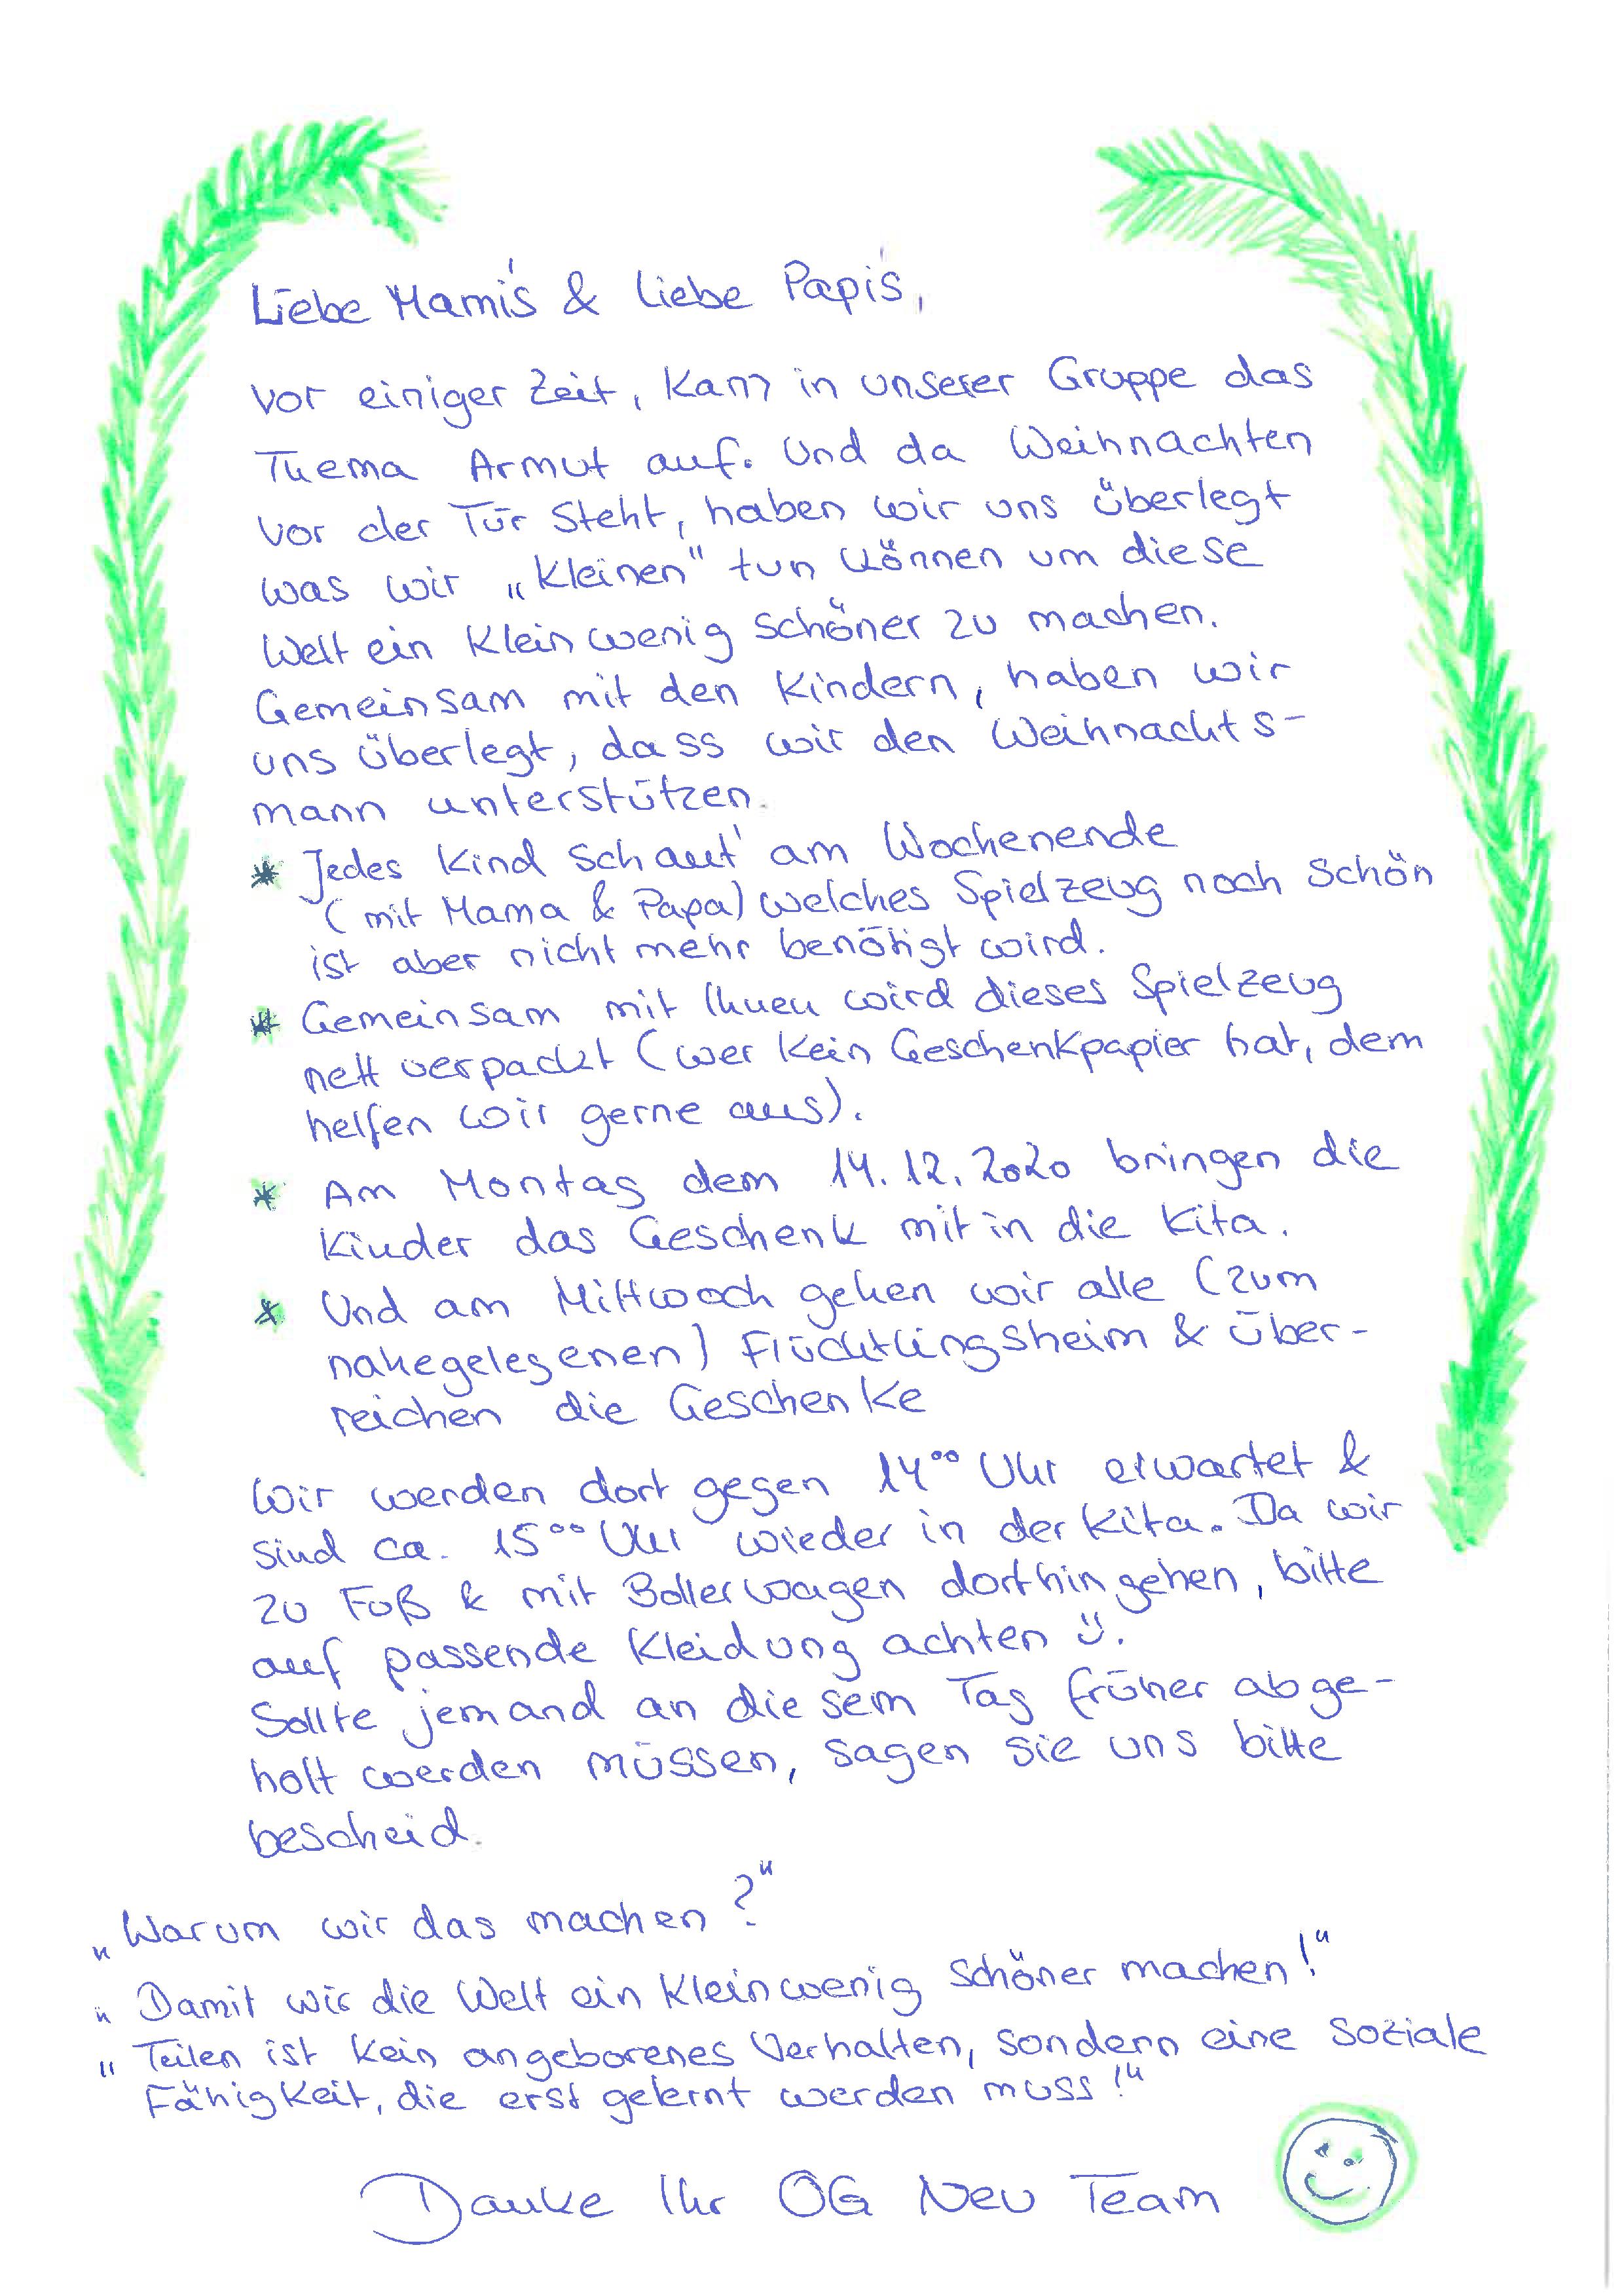 Liebe Mami's & liebe Papi's,
vor einiger Zeit, kam in unserer Gruppe das
Thema Armut auf. Und da Weihnachten
vor der Tür steht, haben wir uns überlegt
was wir „kleinen" tun können um diese
Welt ein klein wenig schöner zu machen.
Gemeinsam mit den Kindern, haben wir
uns überlegt, dass wir den Weihnachts-
mann unterstützen.
* Jedes Kind schaut' am Wochenende
(mit Mama & Papa) welches Spielzeug noch schön
ist aber nicht mehr benötigt wird.
* Gemeinsam mit Ihnen wird dieses Spielzeug
nett verpackt (wer kein Geschenkpapier hat, dem
helfen wir gerne aus).
* Am Montag dem 14.12.2020 bringen die
Kinder das Geschenk mit in die Kita.
* Und am Mittwoch gehen wir alle (zum
nahegelegenen) Flüchtlingsheim & über-
reichen die Geschenke
Wir werden dort gegen 14⁰⁰ Uhr erwartet &
sind ca. 15⁰⁰ Uhr wieder in der Kita. Da wir
zu Fuß & mit Bollerwagen dorthin gehen, bitte
auf passende Kleidung achten ü.
Sollte jemand an diesem Tag früher abge-
holt werden müssen, sagen sie uns bitte
bescheid.
„Warum wir das machen?"
„Damit wir die Welt ein klein wenig schöner machen!"
„Teilen ist kein angeborenes Verhalten, sondern eine soziale
Fähigkeit, die erst gelernt werden muss!"
Danke Ihr OG Neu Team